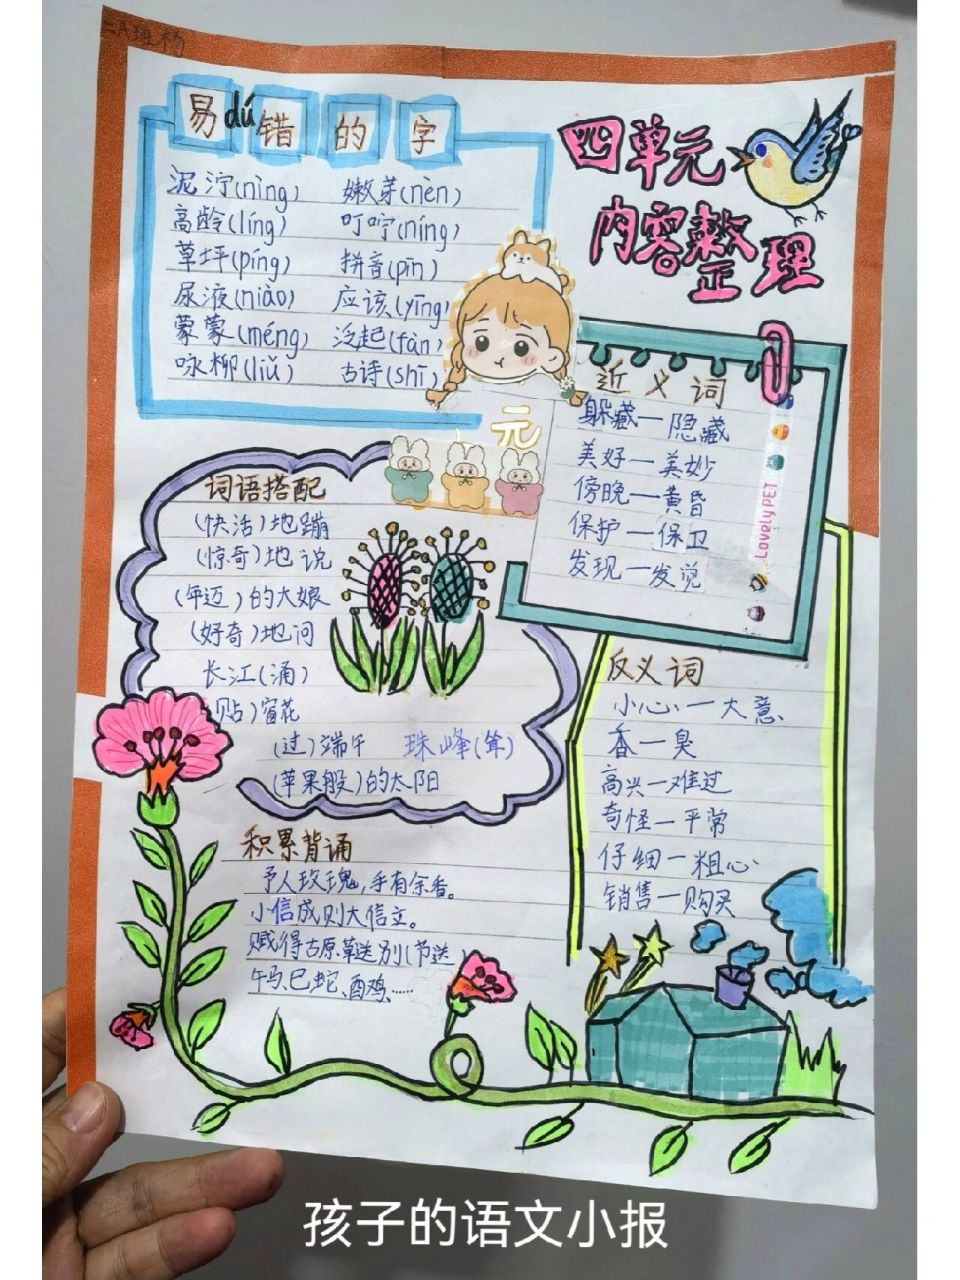 易dú错的字
泥泞(nìng) 嫩芽(nèn)
高龄(líng) 叮咛(níng)
草坪(píng) 拼音(pīn)
尿液(niào) 应该(yīng)
蒙蒙(méng) 泛起(fàn)
咏柳(liǔ) 古诗(shī)
四单元
内容整理
元
近义词
躲藏—隐藏
美好—美妙
傍晚—黄昏
保护—保卫
发现—发觉
Lovely PET
词语搭配
(快活)地蹦
(惊奇)地说
(年迈)的大娘
(好奇)地问
长江(涌)
贴)窗花
(过)端午 珠峰(耸)
(苹果般)的太阳
反义词
小心—大意
香—臭
高兴—难过
奇怪—平常
仔细—粗心
销售—购买
积累背诵
予人玫瑰,手有余香。
小信成则大信立。
赋得古原草送别(节选)
午马、巳蛇、酉鸡、……
孩子的语文小报